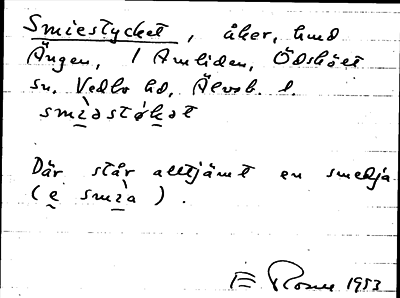 Smiestycket, åker, hmd
Ängen, 1 Amliden, Ödskölt
sn, Vedbo hd, Älvsb. l.
smìəstøkət
Där står alltjämt en smedja
(e smìa).
E Rosén 1953